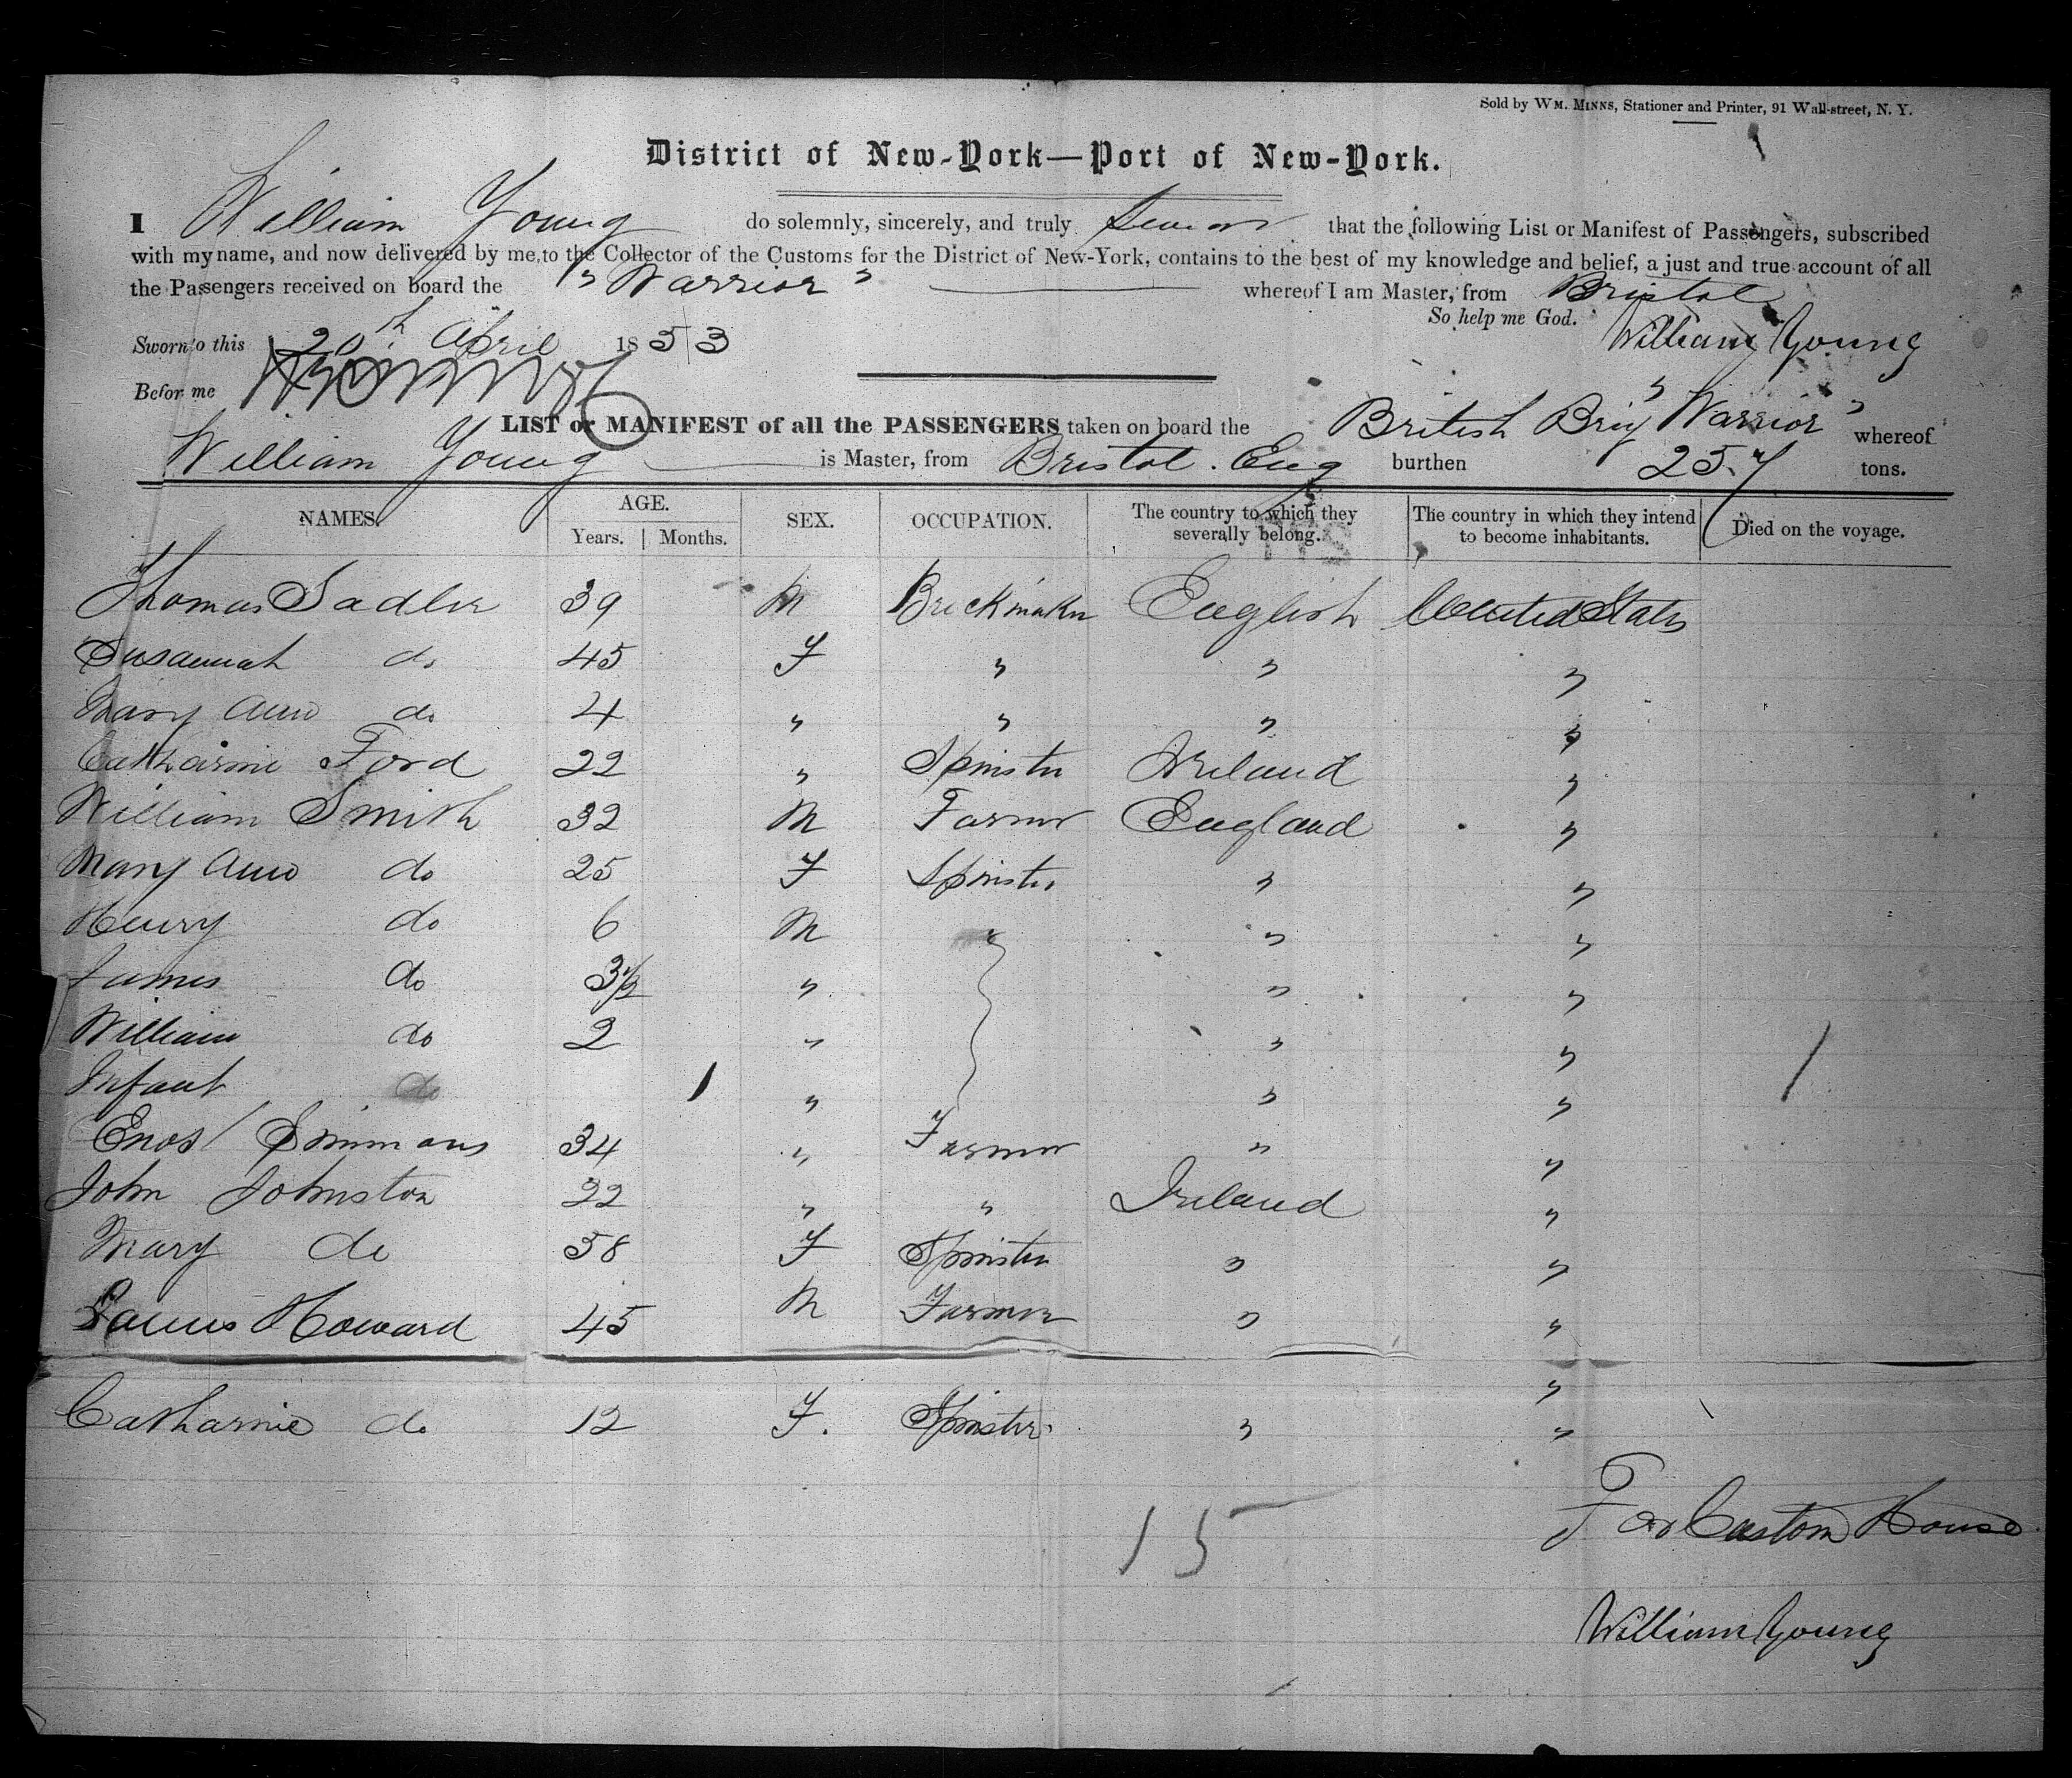 Sold by WM. MINNS, Stationer and Printer, 91 Wall-street, N. Y.
District of New-York—Port of New-York.
I William Young do solemnly, sincerely, and truly swear that the following List or Manifest of Passengers, subscribed
with my name, and now delivered by me, to the Collector of the Customs for the District of New-York, contains to the best of my knowledge and belief, a just and true account of all
the Passengers received on board the "Warrior" whereof I am Master, from Bristol
So help me God.
Sworn to this 20th April 1853 William Young
Befor me
LIST or MANIFEST of all the PASSENGERS taken on board the British Brig "Warrior" whereof
William Young is Master, from Bristol. Eng burthen 257 tons.
NAMES. AGE. Years. Months. SEX. OCCUPATION. The country to which they severally belong. The country in which they intend to become inhabitants. Died on the voyage.
Thomas Sadler 39 M Brickmaker English United States
Susannah do 45 F " " "
Mary Ann do 4 " " " "
Catharine Ford 22 " Spinster Ireland "
William Smith 32 M Farmer England "
Mary Ann do 25 F Spinster " "
Henry do 6 M " " "
James do 3 1/2 " " "
William do 2 " " "
Infant do 1 " " " 1
Enos Simmons 34 " Farmer " "
John Johnston 22 " " Ireland "
Mary do 58 F Spinster " "
James Howard 45 M Farmer " "
"
Catharine do 12 F. Spinster " "
15
For Custom House
William Young